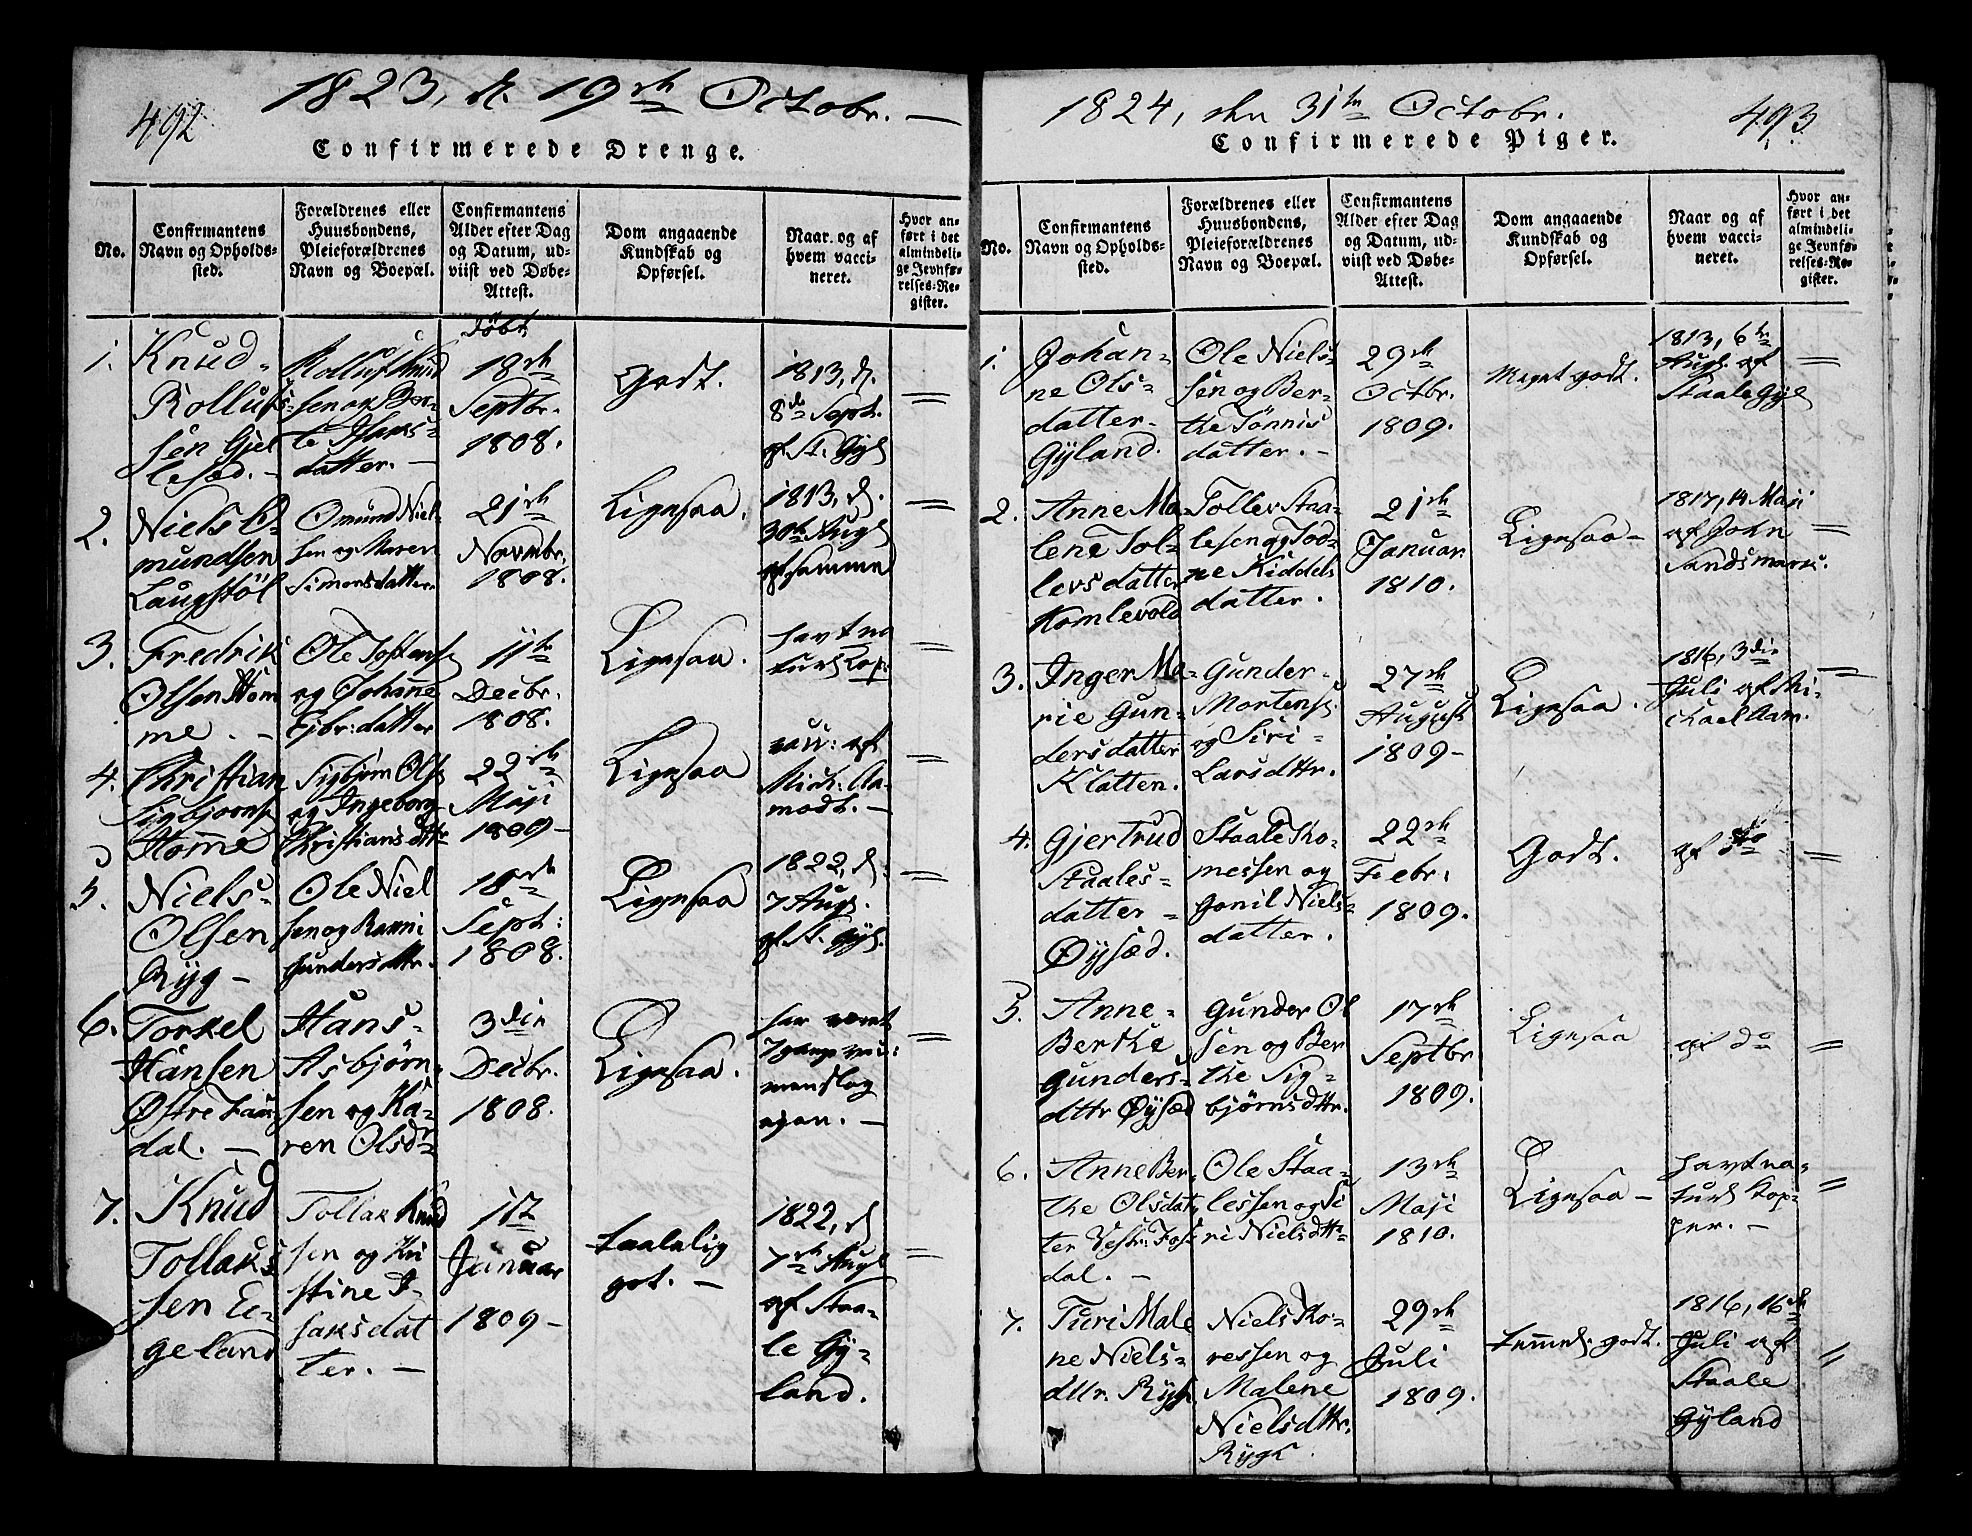 492
1823, d. 19de Octobr. —
Confirmerede Drenge.
No.
Confirmantens
Navn og Opholds-
sted.
Forældrenes eller
Huusbondens,
Pleieforældrenes
Navn og Boepæl.
Confirmantens
Alder efter Dag
og Datum, ud-
viist ved Døbe-
Attest.
Dom angaaende
Kundskab og
Opførsel.
Naar og af
hvem vacci-
neret.
Hvor an-
ført i det
almindeli-
ge Jevnfø-
relses-Re-
gister.
1.
Knud
Rolluf-
sen Gjel
lesød. -
Rolluf Knud
sen og Ber-
te Isaks-
datter. -
døbt
18de
Septbr.
1808.
Godt.
1813, d.
8de Sept.
af St. Gyl
=
2.
Niels O-
mundsen
Laugstøl
Omund Niel-
sen og Maren
Simonsdatter
21de
Novmbr.
1808.
Ligesaa.
1813, d.
30te Augl
af samme
=
3.
Fredrik
Olsen Hom
me. -
Ole Tostens
og Johanne
Fjbr: datter
11te
Decbr.
1808.
Ligesaa.
havt na
turl Kop:
=
4.
Christian
Sigbjorns
Homme
Sigbjørn Ols
og Ingeborg
Christiansdttr
22de
Maji
1809 -
Ligesaa
vacc: af
Mich: Aa-
modt. -
=
5.
Niels
Olsen
Ryg -
Ole Niel
sen og Ranni
Gundersdttr.
18de
Sept:
1808.
Ligesaa
1822, d.
7 Aug.
af St. Gyl.
=
6.
Torkel
Hansen
Østre Lau
dal. -
Hans
Asbjørn-
sen og Ka-
ren Olsdr
3die
Decbr.
1808.
Ligesaa.
har været
7 gange vac:
men slog
igen. -
=
7.
Knud
Tollaks
sen Ee-
geland
Tollak Knud
sen og Kri
stine I-
saksdat
ter. -
11te
Januar
1809 -
taalelig
got. -
1822, d
7de Augl
af Staa-
le Gy-
land.
=
493
1824, den 31te Octobr.
Confirmerede Piger.
No.
Confirmantens
Navn og Opholds-
sted.
Forældrenes eller
Huusbondens,
Pleieforældrenes
Navn og Boepæl.
Confirmantens
Alder efter Dag
og Datum, ud-
viist ved Døbe-
Attest.
Dom angaaende
Kundskab og
Opførsel.
Naar og af
hvem vacci-
neret.
Hvor an-
ført i det
almindeli-
ge Jevnfø-
relses-Re-
gister.
1.
Johan-
ne Ols-
datter
Gyland.
Ole Niels-
sen og Ber-
the Tønnis
datter. -
29de
Octbr.
1809.
Meget godt.
1813, 6te
Augl. af
Staale Gyl
=
2.
Anne Ma
lene Tol-
levsdatter
Homlevold
Tollev Staa-
lesen og Tod-
ne Kiddels
datter.
21de
Januar
1810.
Ligesaa -
1817, 14 Maji
af John
Sandsmark.
=
3.
Inger Ma-
rie Gun-
dersdatter
Klatten.
Gunder
Mortens
og Siri
Larsdttr.
27de
August
1809 -
Ligesaa.
1816, 3die
Juli af Mi-
chael Aam.
=
4.
Gjertrud
Staales-
datter
Øysæd.
Staale Ko-
messen og
Gonil Niels-
datter.
22de
Febr:
1809.
Godt.
af dto
=
5.
Anne
Berthe
Gunders-
dttr Øysæd
Gunder Ol
sen og Ber
the Sig-
bjørnsdttr.
17de
Septbr
1809.
Ligesaa
af do
=
6.
Anne Ber-
the Olsdat
ter Vestr: Fos
dal. -
Ole Staa-
lessen og Si
ri Nielsdttr
13de
Maji
1810.
Ligesaa -
havt na-
turl Kop-
per. -
=
7.
Turi Male
ne Niels-
dttr. Rygh
Niels Ko-
ressen og
Malene
Nielsdttr.
Rygh.
29de
Juli
1809.
temmel: godt.
1816, 16de
Juli af
Staale
Gyland
=